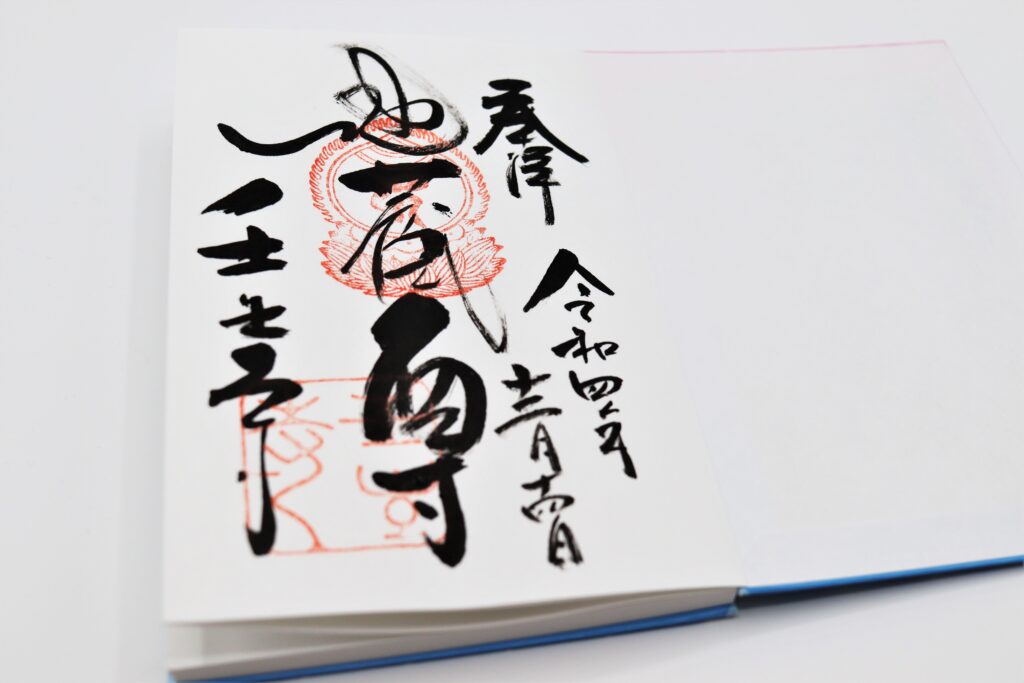 奉拝
令和四年
十二月十四日
地蔵尊
壬生寺